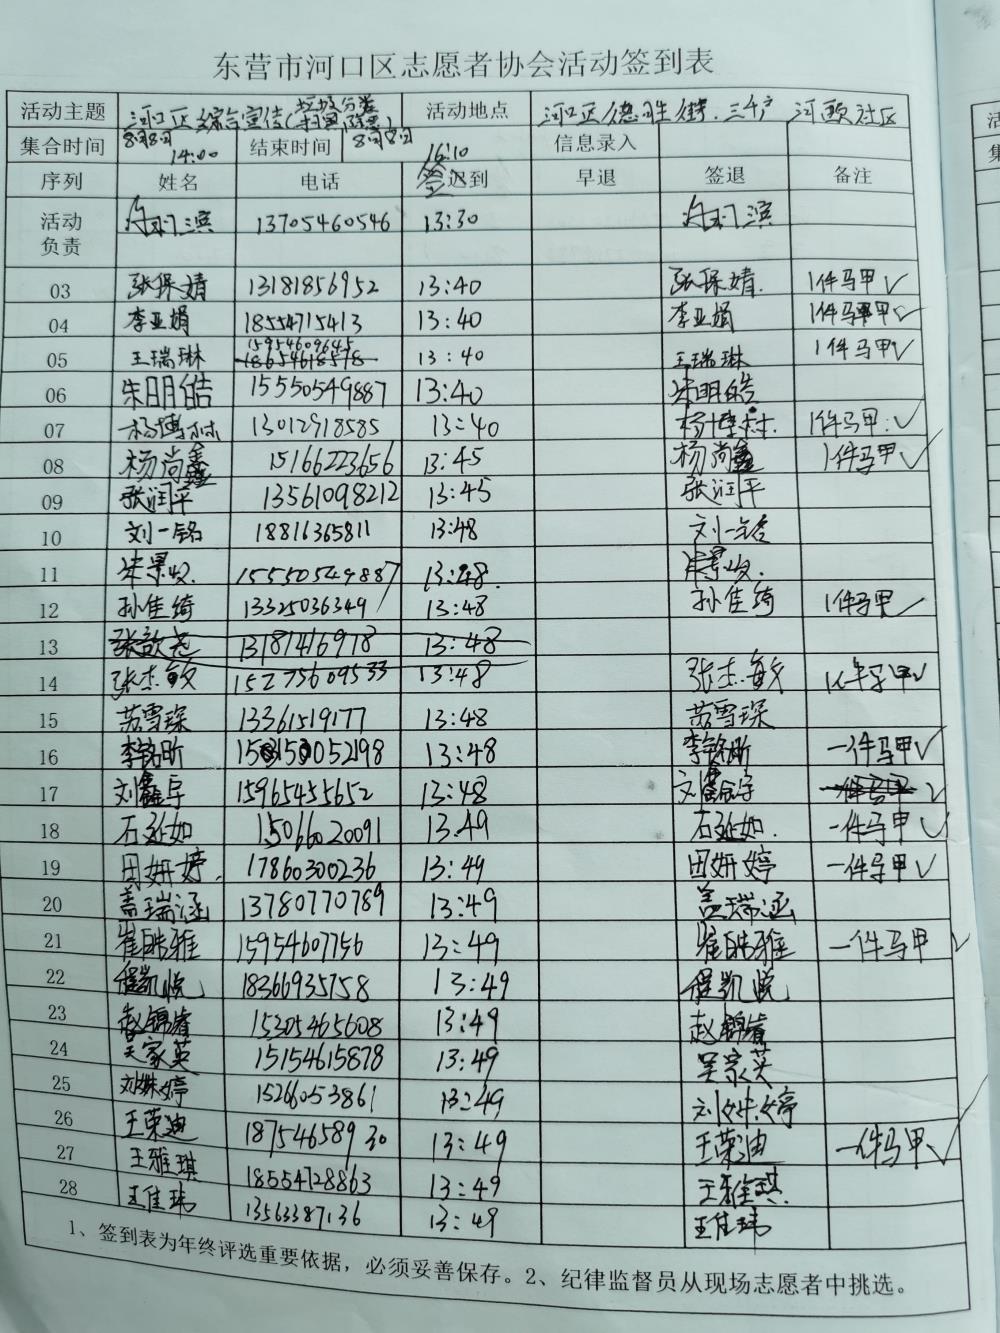 东营市河口区志愿者协会活动签到表
活动主题 河口区综合宣传(垃圾分类 活动地点 河口区德胜街.三千户 河颐社区
集合时间 8月8日 14:00 结束时间 8月8日 16:10 信息录入
序列 姓名 电话 签迟到 早退 签退 备注
活动负责 滨 13705460546 13:30 滨
03 张保婧 13181856952 13:40 张保婧. 1件马甲✓
04 李亚娟 18554715413 13:40 李亚娟 1件马甲✓
05 王瑞琳 15954609645 18654618578 13:40 王瑞琳 1件马甲✓
06 朱明皓 15550549887 13:40 朱明皓
07 杨博林 13012918585 13:40 杨博林 1件马甲.✓
08 杨尚鑫 15166223656 13:45 杨尚鑫 1件马甲✓
09 张润平 13561098212 13:45 张润平
10 刘一铭 18816365811 13:48 刘一铭
11 朱景 15550549887 13:48. 朱景
12 孙佳绮 13325036349 13:48 孙佳绮 1件马甲✓
13 张歆尧 13181416918 13:48
14 张杰敏 15275609533 13:48 张杰敏 1件马甲✓
15 苏雪琛 13361519177 13:48 苏雪琛
16 李铭昕 13:48 李铭昕 一件马甲✓
17 刘鑫宇 15965455652 13:48 刘鑫宇 一件马甲✓
18 石延如 15066020091 13:49 石延如. 一件马甲✓
19 田妍婷. 17860300236 13:49 田妍婷 一件马甲✓
20 盖瑞涵 13780770789 13:49 盖瑞涵
21 崔皓雅 15954607756 13:49 崔皓雅 一件马甲✓
22 程凯悦 18366935758 13:49 程凯悦
23 赵锦睿 15305465608 13:49 赵锦睿
24 吴家英 15154615878 13:49 吴家英
25 刘姝婷 15266053861 13:49 刘姝婷
26 王荣迪 18754658930 13:49 王荣迪 一件马甲✓
27 王雅琪 18554128863 13:49 王雅琪
28 王佳玮 13563387136 13:49 王佳玮
1、签到表为年终评选重要依据，必须妥善保存。2、纪律监督员从现场志愿者中挑选。